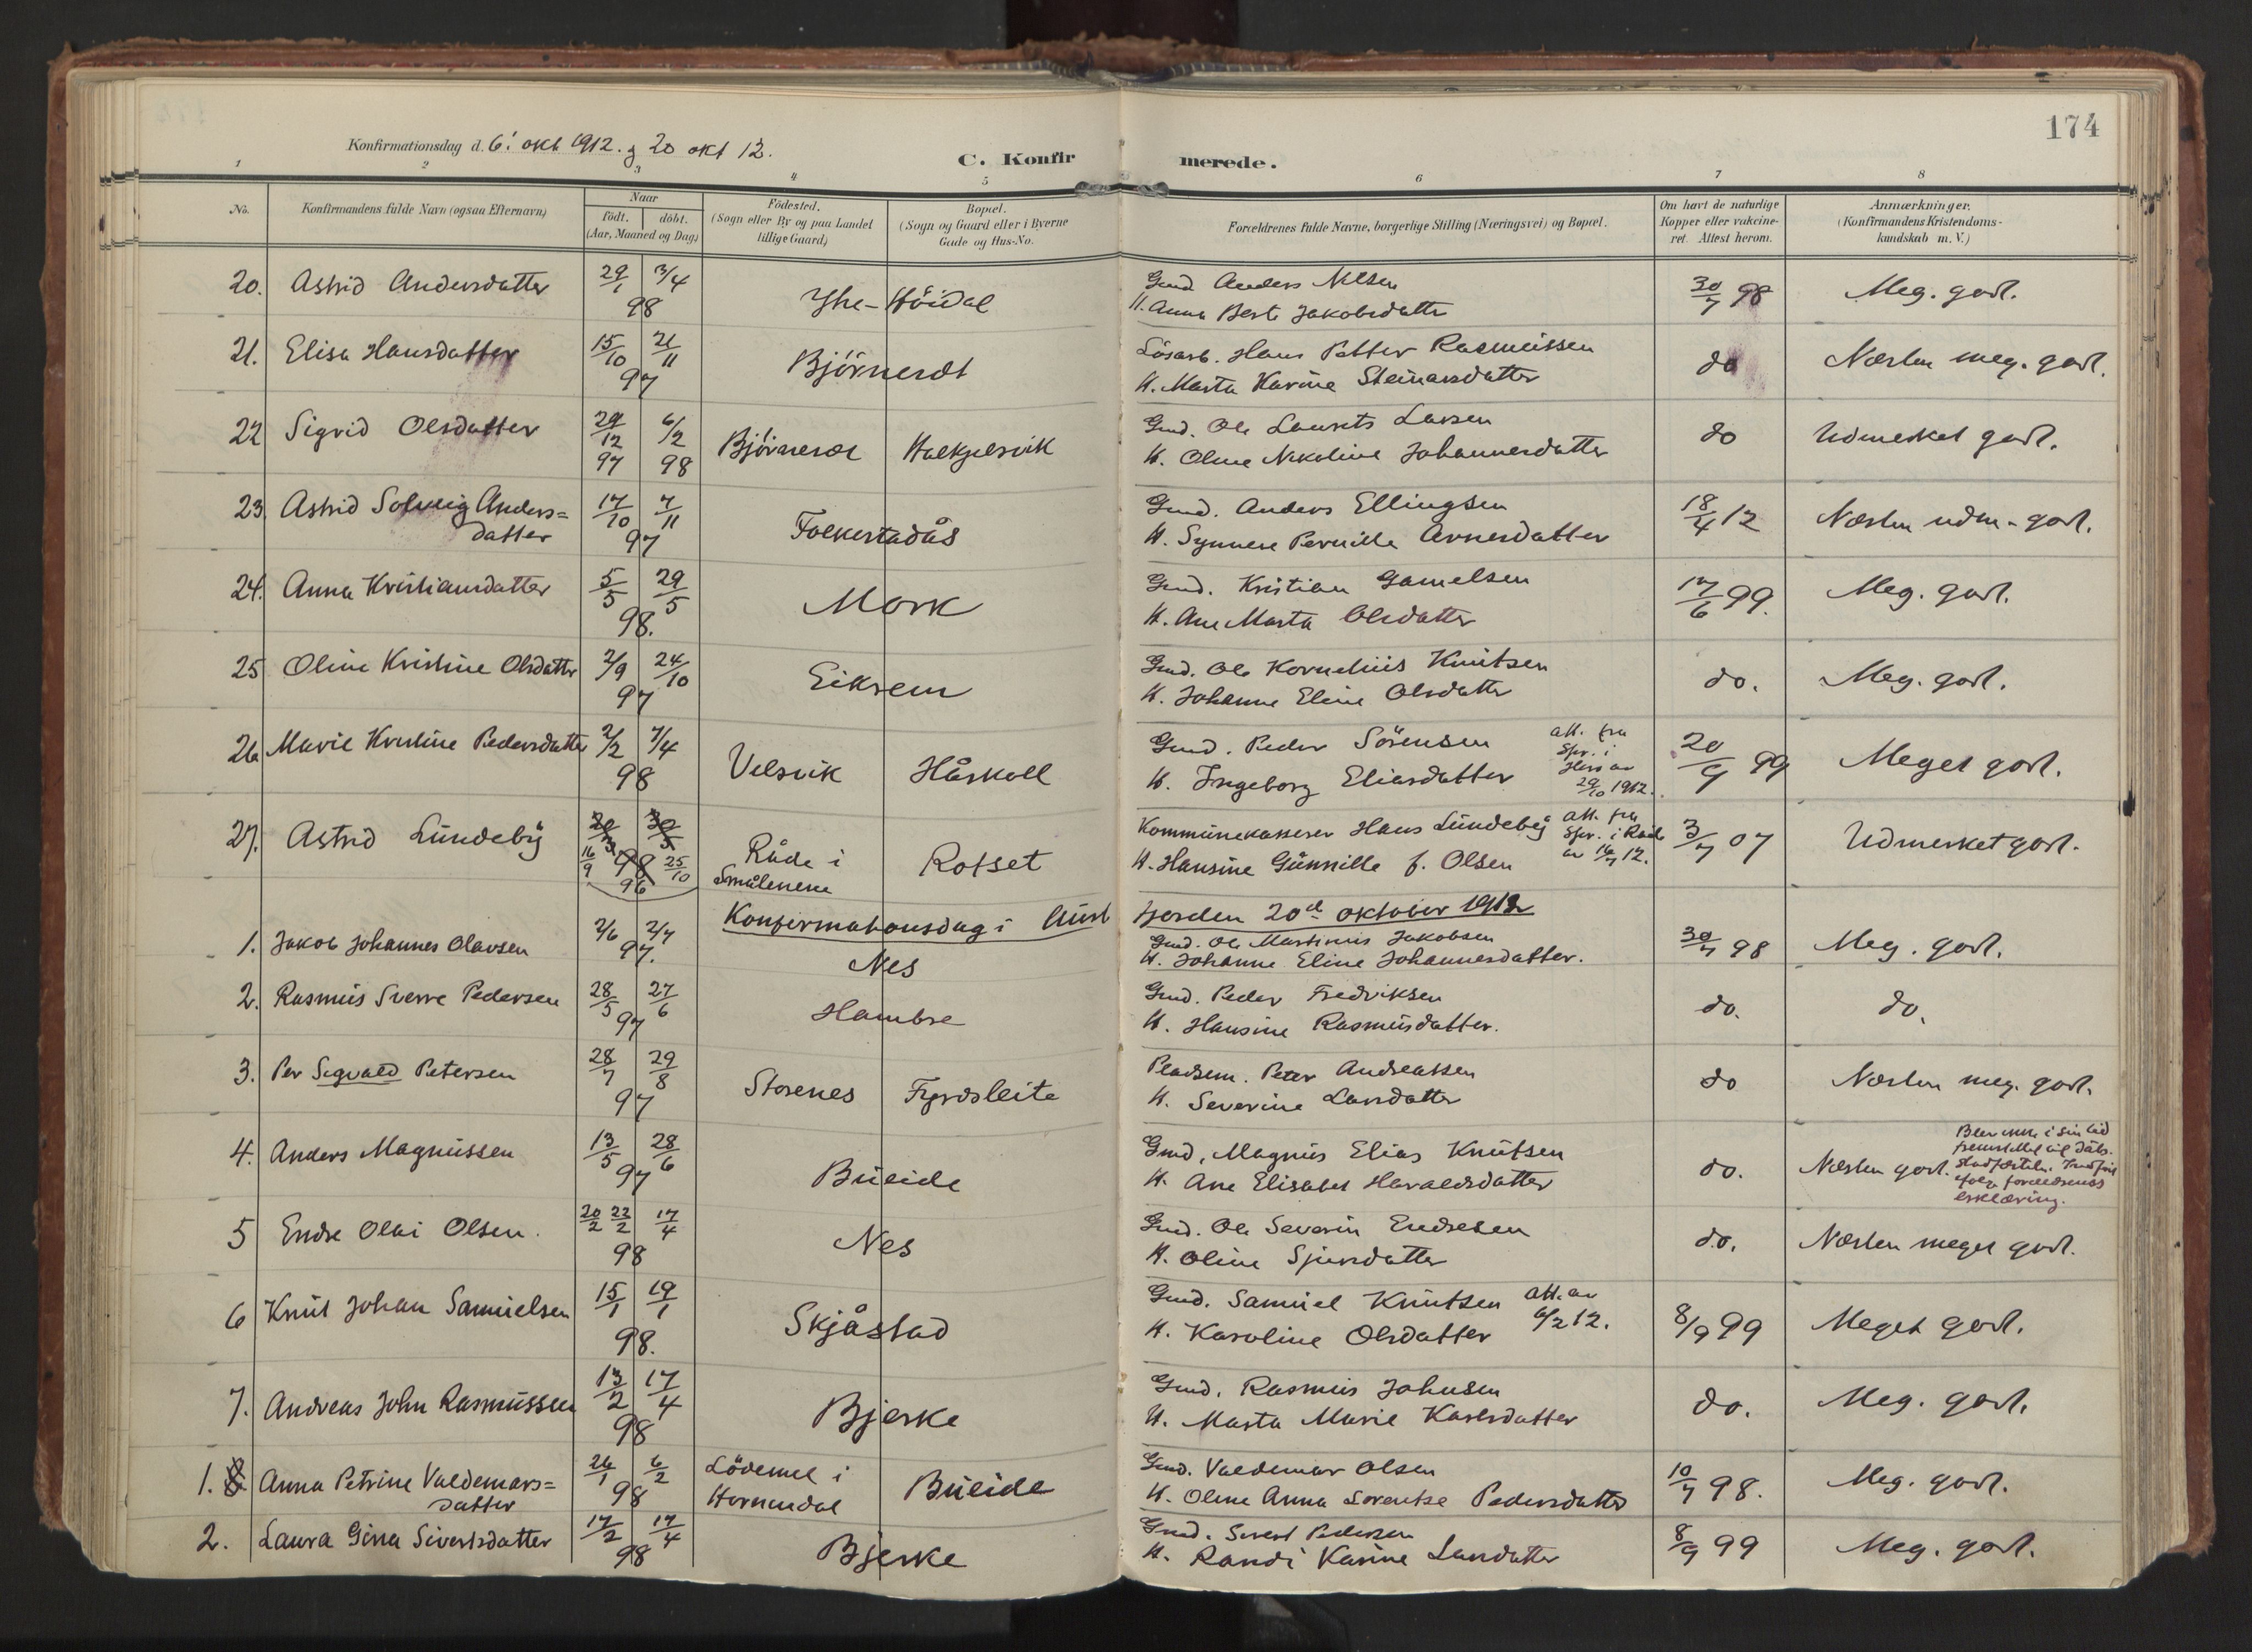 174
Konfirmationsdag d. 6! okt 1912. og 20 okt 12.
C. Konfirmerede.
1 2 3 4 5 6 7 8
No. Konfirmandens fulde Navn (ogsaa Efternavn) Naar født. døbt. (Aar, Maaned og Dag) Fødested. (Sogn eller By og paa Landet tillige Gaard) Bopæl. (Sogn og Gaard eller i Byerne Gade og Hus-No. Forældrenes fulde Navne, borgerlige Stilling (Næringsvei) og Bopæl. Om havt de naturlige Kopper eller vakcineret. Attest herom. Anmærkninger. (Konfirmandens Kristendomskundskab m. V.)
20. Astrid Andersdatter 29/1 3/4 98 Yhe-Höidal Gmd Anders Nilsen
H. Anna Berte Jakobsdatter 30/7 98 Meg. godt.
21. Elisa Hansdatter 15/10 21/11 97 Björnerdt Lösarb. Hans Petter Rasmussen
H. Marta Karine Steinarsdatter do Næsten meg. godt.
22 Sigrid Olsdatter 29/12 97 6/2 98 Gmd. Ole Laurits Larsen
H. Oline Nikoline Johannesdatter do Udmerket godt.
23. Astrid Solveig Anders=
datter 17/10 7/11 97 Folkestadås Gmd. Anders Ellingsen
H. Synnere Pernille Arnesdatter 18/4 12 Næsten udm. godt.
24. Anna Kristiansdatter 5/5 29/5 98. Mork Gmd. Kristian Gamelsen
H. Ane Marta Olsdatter 17/6 99. Meg. godt.
25 Oline Kristine Olsdatter 2/9 24/10 97 Eiksem Gmd. Ole Kornelius Knutsen
H. Johanne Eline Olsdatter do. Meg. godt.
26 Marie Kristine Pedersdatter 2/2 7/4 98 Velsvik Håskoll Gmd. Peder Sörensen
H. Ingeborg Eliasdatter att. fra Spr. i 29/10 1912. 20/9 99 Meget godt.
27. Astrid Lundeby 16/9 25/10 96 Råde i
Smålenene Rotset Kommunekasserer Hans Lundeby
H. Hansine Gunnille f. Olsen att. fra Spr. i Råde av 16/7 12. 3/7 07 Udmerket godt.
Konfirmationsdag i Aust fjorden 20d oktober 1912
1. Jakob Johannes Olavsen 2/6 2/7 97. Nes Gmd. Ole Martinus Jakobsen
H. Johanne Eline Johannesdatter. 30/7 98 Meg. godt.
2. Rasmus Sverre Pedersen 28/5 27/6 97 Hambre Gmd. Peder Fredriksen
H. Hansine Rasmusdatter. do. do.
3. Per Sigvald Petersen 28/7 29/8 97 Storenes Fyrdsleite Pladsem. Peter Andreassen
H. Severine Larsdatter do Næsten meg. godt.
4. Anders Magnussen 13/5 28/6 97 Bueide Gmd. Magnus Elias Knutsen
H. Ane Elisabet Haraldsdatter do. Næsten godt. Blev ikke i sin tid
fremstillet til dåbs-
stadfæstelse.
forældrenes
erklæring.
5 Endre Olai Olsen. 20/2 22/2 17/4 98 Nes Gmd. Ole Severin Endresen
H. Oline Sjursdatter do. Næsten meget godt.
6 Knut Johan Samuelsen 15/1 19/1 98. Skjåstad Gmd. Samuel Knutsen
H. Karoline Olsdatter att. av 6/2 12. 8/9 99 Meget godt.
7. Andreas John Rasmussen 13/2 17/4 98 Bjerke Gmd. Rasmus Johnsen
H. Marta Marie Karlsdatter do. Meg. godt.
1. Anna Petrine Valdemars=
datter 26/1 6/2 98 Lödemel i
Hornindal Bueide Gmd. Valdemar Olsen
H. Oline Anna Lorentse Pedersdatter 10/7 98. Meg. godt.
2. Laura Gina Sivertsdatter 17/2 17/4 98 Bjerke Gmd. Sivert Pedersen
H. Randi Karine Larsdatter 8/9 99 Meg. godt.